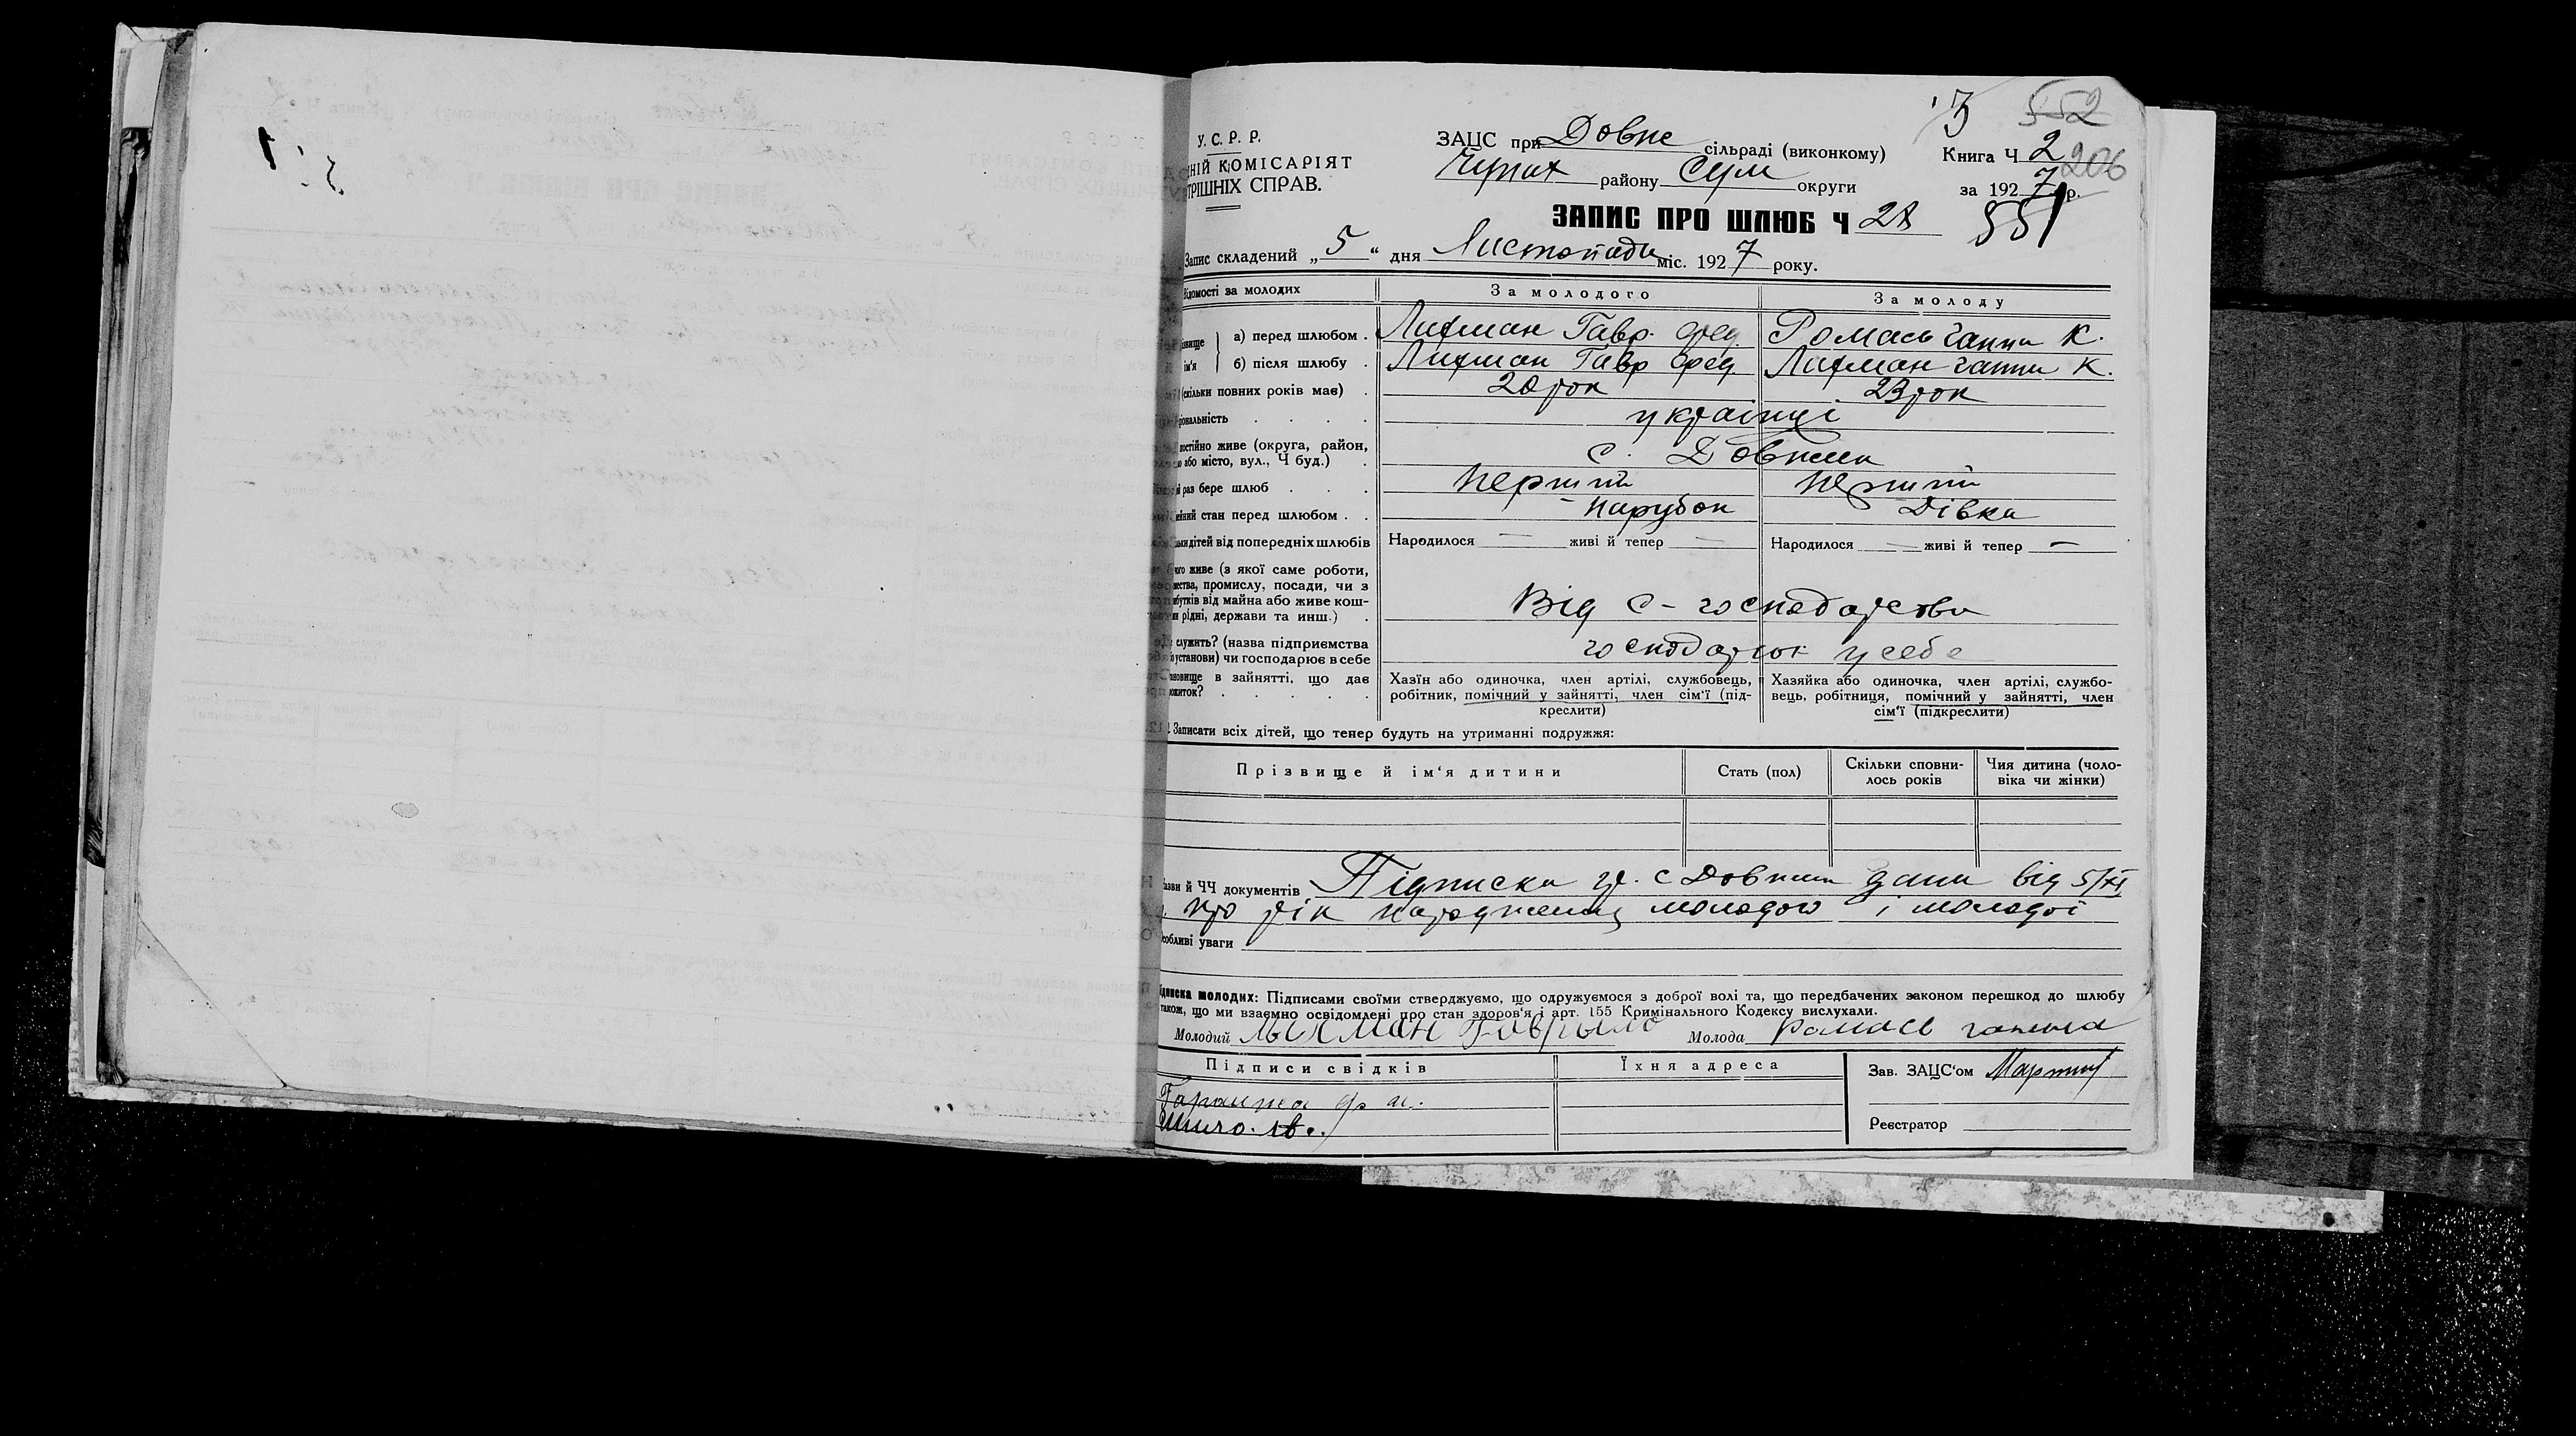 З 552
У. С. Р. Р.
НІЙ КОМІСАРІЯТ
ТРІШНІХ СПРАВ.
ЗАЦС при Довж сільраді (виконкому)
Книга Ч 2
206
району Сум округи
за 1927 р.
ЗАПИС ПРО ШЛЮБ Ч 28
551
Запис складений „5“ дня Листопада міс. 1927 року.
Відомості за молодих
За молодого
За молоду
а) перед шлюбом . Лихман Гавр. Фед. Ромась Ганна К.
ім'я б) після шлюбу . Лихман Гавр Фед Лихман Ганна К.
(скільки повних років має) . 20 рок 23 рок
українці
постійно живе (округа, район,
або місто, вул., Ч буд.) . с.
раз бере шлюб . . . Перший Перший
стан перед шлюбом . . Парубок Дівка
дітей від попередніх шлюбів Народилося — живі й тепер — Народилося — живі й тепер —
живе (з якої саме роботи,
промислу, посади, чи з
від майна або живе кош-
рідні, держави та инш.) . Від с-господарства
служить? (назва підприємства
установи) чи господарює в себе господарює у себе
в зайнятті, що дає
Хазїн або одиночка, член артілі, службовець,
робітник, помічний у зайнятті, член сім'ї (під-
креслити)
Хазяйка або одиночка, член артілі, службо-
вець, робітниця, помічний у зайнятті, член
сім'ї (підкреслити)
Записати всіх дітей, що тепер будуть на утриманні подружжя:
Прізвище й ім'я дитини
Стать (пол)
Скільки сповни-
лось років
Чия дитина (чоло-
віка чи жінки)
й ЧЧ документів Підписка гр. с дана від 5/XI
про рік народження молодого і молодої
Особливі уваги
Підписка молодих: Підписами своїми стверджуємо, що одружуємося з доброї волі та, що передбачених законом перешкод до шлюбу
також, що ми взаємно освідомлені про стан здоров'я і арт. 155 Кримінального Кодексу вислухали.
Молодий Лыхман Гаврыло Молода Ромась ганна
Підписи свідків
Їхня адреса
Зав. ЗАЦС'ом
Реєстратор